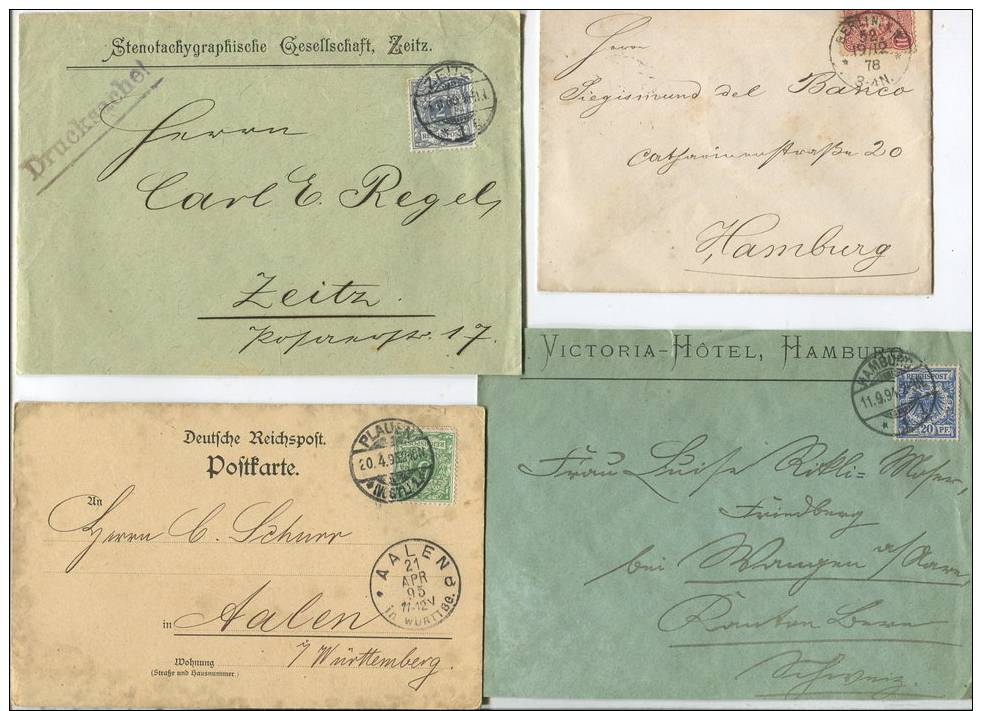 Stenotachygraphische Gesellschaft, Zeitz.
Drucksache!
ZEITZ
Herrn
Carl E. Regel,
Zeitz.
Posaerstr. 17.
BERLIN, N.W.
52
19/12
78
8-9N.
Herrn
Siegismund del Banco
Catharinenstraße 20
Hamburg
Deutsche Reichspost.
Postkarte.
PLAUEN
20.4.95
An
Herrn C. Schurr
AALEN
21
APR
95
11-12V
in WÜRTTBG.
in Aalen
i/Württemberg.
Wohnung
(Straße und Hausnummer)
VICTORIA-HÔTEL, HAMBURG
HAMBURG
11.9.94
REICHSPOST
20 PF.
Frau Luise Rikli=Moser,
Friedberg
bei Wangen a/Aare,
Kanton Bern
Schweiz.